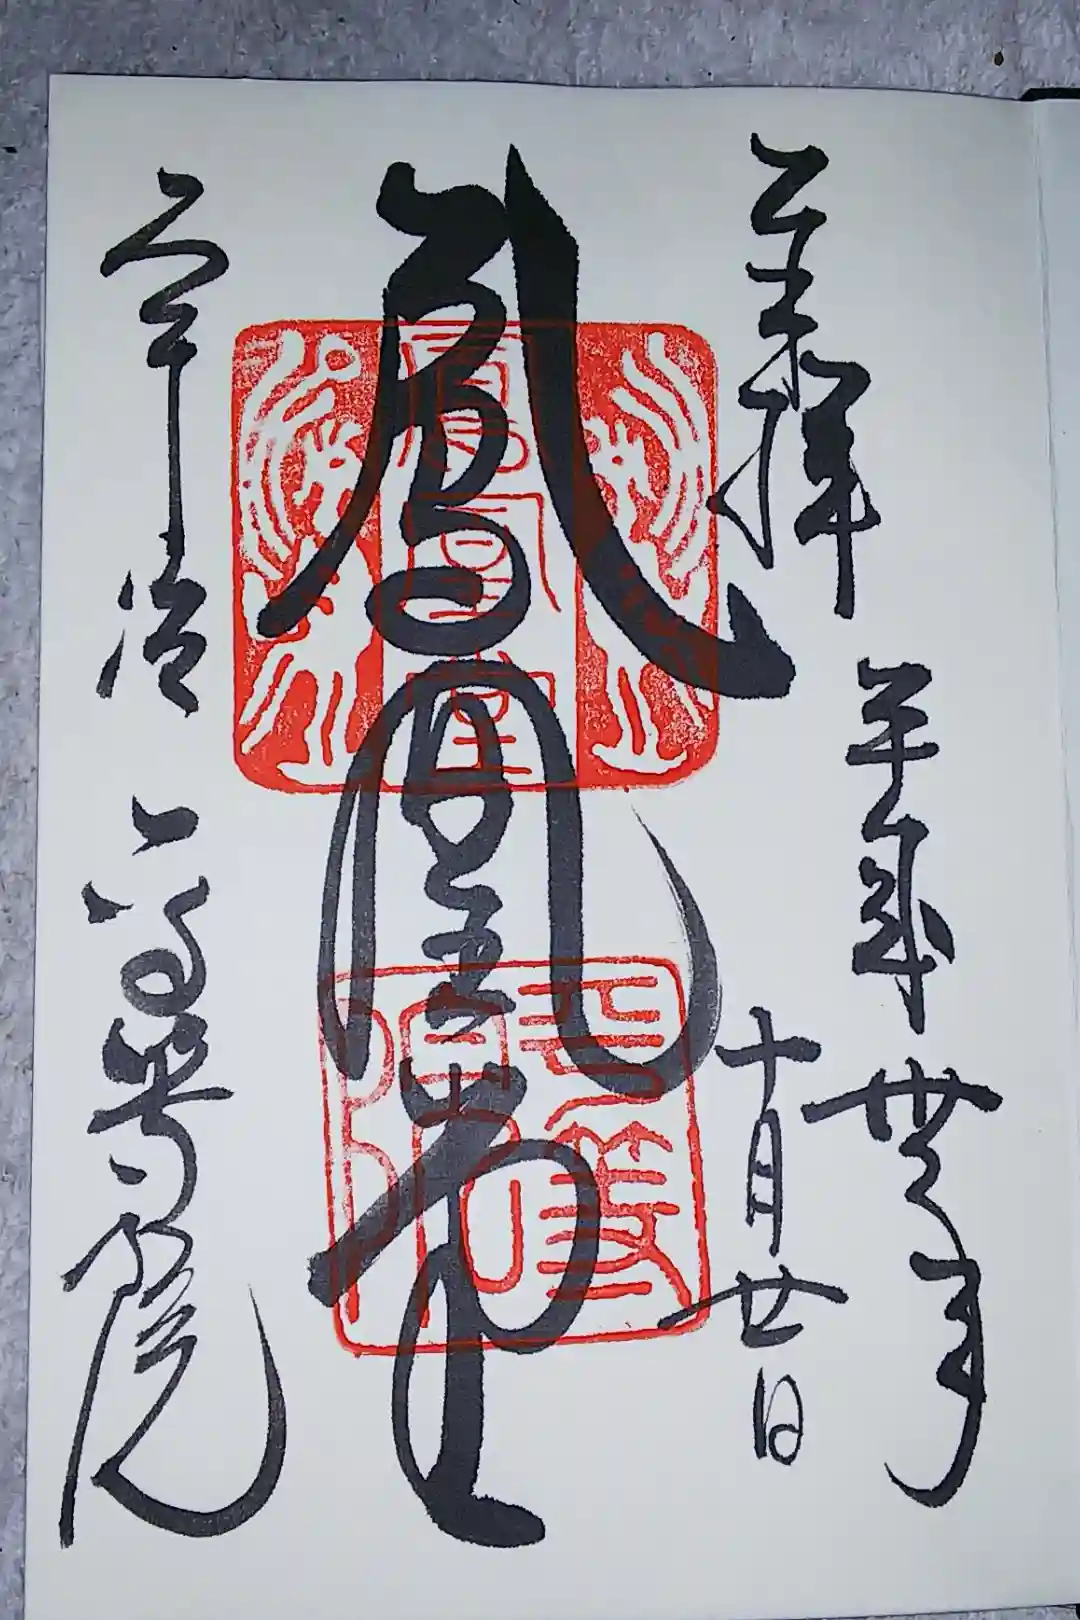 奉拝
平成丗年
十月廿日
鳳凰堂
宇治
平等院
鳳凰堂
平等院